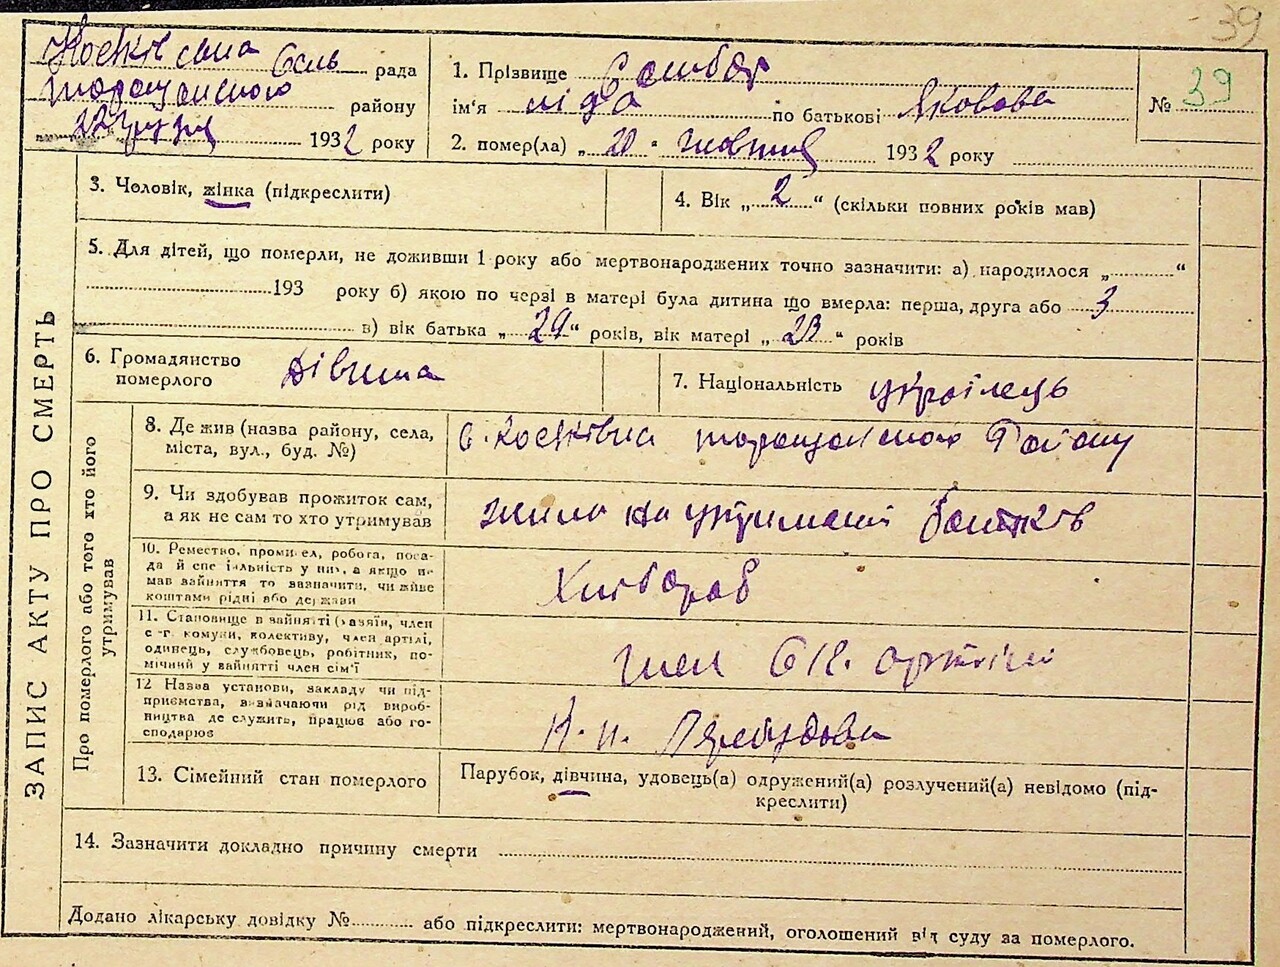 39
рада
району
1932 року
1. Прізвище
ім'я ліда по батькові Яковова
2. помер(ла) „ 20 " жовтня 1932 року
№ 39
3. Чоловік, жінка (підкреслити)
4. Вік „ 2 “ (скільки повних років мав)
5. Для дітей, що померли, не доживши 1 року або мертвонароджених точно зазначити: а) народилося „ “
193 року б) якою по черзі в матері була дитина що вмерла: перша, друга або 3
в) вік батька „ 29 “ років, вік матері „ 23 “ років
6. Громадянство
померлого Дівчина
7. Національність українець
ЗАПИС АКТУ ПРО СМЕРТЬ
Про померлого або того хто його
утримував
8. Де жив (назва району, села,
міста, вул., буд. №)
9. Чи здобував прожиток сам,
а як не сам то хто утримував
жила на утриманні батьків
10. Ремество, промисел, робота, поса-
да й спеціальність у них, а якщо не
мав зайняття то зазначити, чи живе
коштами рідні або держави
Хлібороб
11. Становище в зайнятті (хазяїн, член
с-г. комуни, колективу, член артілі,
одинець, службовець, робітник, по-
мічний у зайнятті член сім'ї
член с/г. артілі
12 Назва установи, закладу чи під-
приємства, визначаючи рід вироб-
ництва де служить, працює або го-
сподарює
13. Сімейний стан померлого
Парубок, дівчина, удовець(а) одружений(а) розлучений(а) невідомо (під-
креслити)
14. Зазначити докладно причину смерти
Додано лікарську довідку № або підкреслити: мертвонароджений, оголошений від суду за померлого.